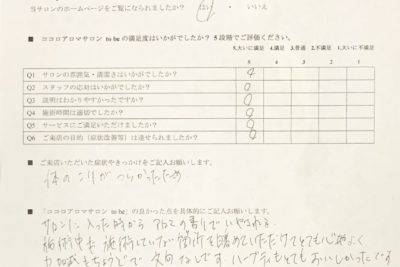 当サロンのホームページをご覧になられましたか? はい ・ いいえ
■ ココロアロマサロン to be の満足度はいかがでしたか? 5 段階でご評価ください。
5.大いに満足 4.満足 3.普通 2.不満足 1.大いに不満足
5 4 3 2 1
Q1 サロンの雰囲気・清潔さはいかがでしたか?
Q2 スタッフの応対はいかがでしたか?
Q3 説明はわかりやすかったですか?
Q4 施術時間は適切でしたか?
Q5 サービスにご満足いただけましたか?
Q6 ご来店の目的(症状改善等)は達せられましたか?
■ ご来店いただいた症状やきっかけをご記入お願いします。
体のこりがつらかったため
■ 「ココロアロマサロン to be」の良かった点を具体的にご記入お願いします。
サロンに入った時からアロマの香りでいやされる。
施術中も施術していない箇所を暖めていただけてとても心地よく
力加減もちょうどで文句なしです。ハーブティもとてもおいしかったです